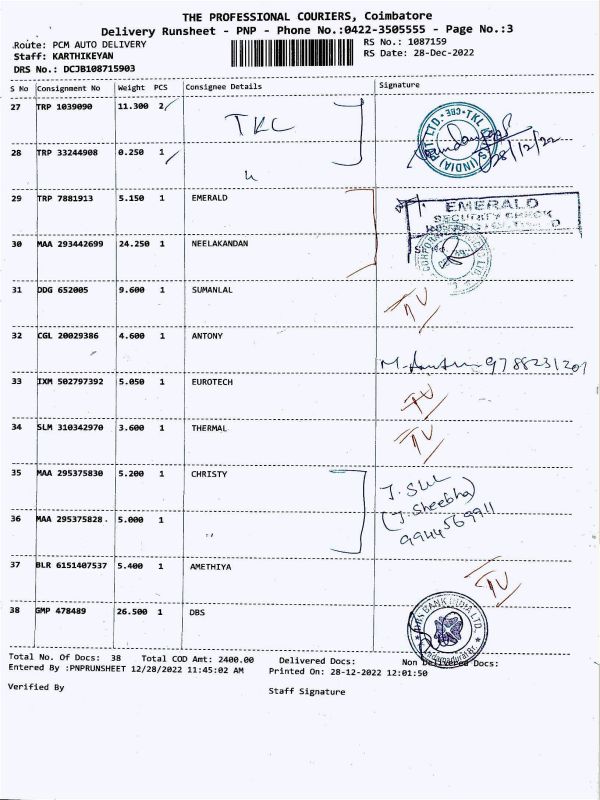 THE PROFESSIONAL COURIERS, Coimbatore
Delivery Runsheet - PNP - Phone No.:0422-3505555 - Page No.:3
Route: PCM AUTO DELIVERY
RS No.: 1087159
Staff: KARTHIKEYAN
RS Date: 28-Dec-2022
DRS No.: DCJB108715903
S No Consignment No Weight PCS Consignee Details Signature
27 TRP 1039090 11.300 2 TKC
28 TRP 33244908 0.250 1 "
28/12/22
29 TRP 7881913 5.150 1 EMERALD
EMERALD
SECURITY CHECK
30 MAA 293442699 24.250 1 NEELAKANDAN
31 DDG 652005 9.600 1 SUMANLAL TV
32 CGL 20029386 4.600 1 ANTONY 9788231201
33 IXM 502797392 5.050 1 EUROTECH TV
34 SLM 310342970 3.600 1 THERMAL TV
35 MAA 295375830 5.200 1 CHRISTY
(J. Sheebha)
9944569911
36 MAA 295375828. 5.000 1 "
37 BLR 6151407537 5.400 1 AMETHIYA TV
38 GMP 478489 26.500 1 DBS
DBS BANK INDIA LTD.
Total No. Of Docs: 38 Total COD Amt: 2400.00 Delivered Docs: Non Delivered Docs:
Entered By :PNPRUNSHEET 12/28/2022 11:45:02 AM Printed On: 28-12-2022 12:01:50
Verified By
Staff Signature